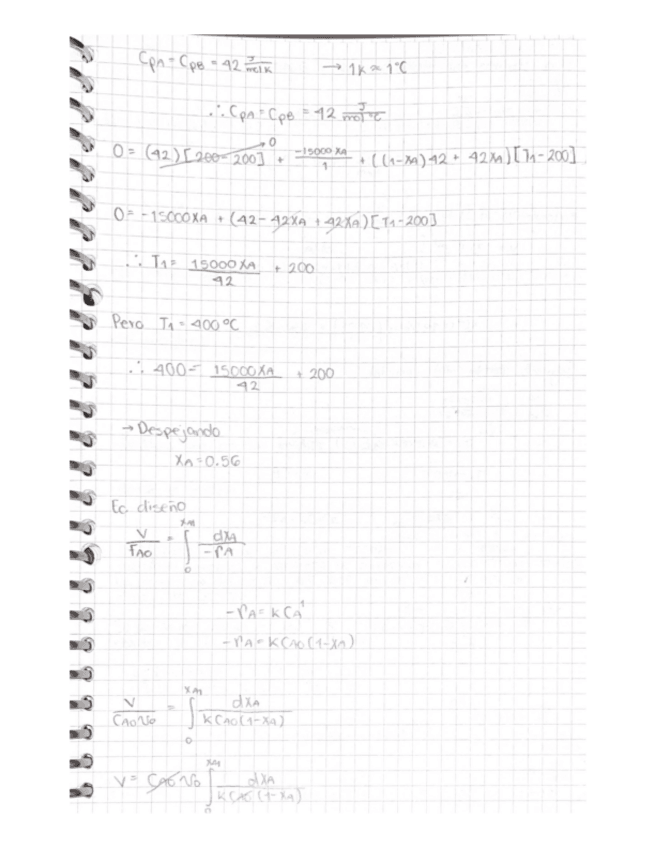 CpA = CpB = 42 J/molK → 1K ≈ 1°C
∴ CpA = CpB = 42 J/mol°C
0 = (42)[200-200] 0 + -15000XA/1 + ((1-XA)42 + 42XA)[T1-200]
0 = -15000XA + (42-42XA + 42XA)[T1-200]
∴ T1 = 15000XA/42 + 200
Pero T1 = 400°C
∴ 400 = 15000XA/42 + 200
→ Despejando
XA = 0.56
Ec. diseño
V/FAO = ∫₀^XA1 dXA/-rA
-rA = kCA¹
-rA = kCAO(1-XA)
V/CAOνo = ∫₀^XA1 dXA/kCAO(1-XA)
V = CAOνo ∫₀^XA1 dXA/kCAO(1-XA)